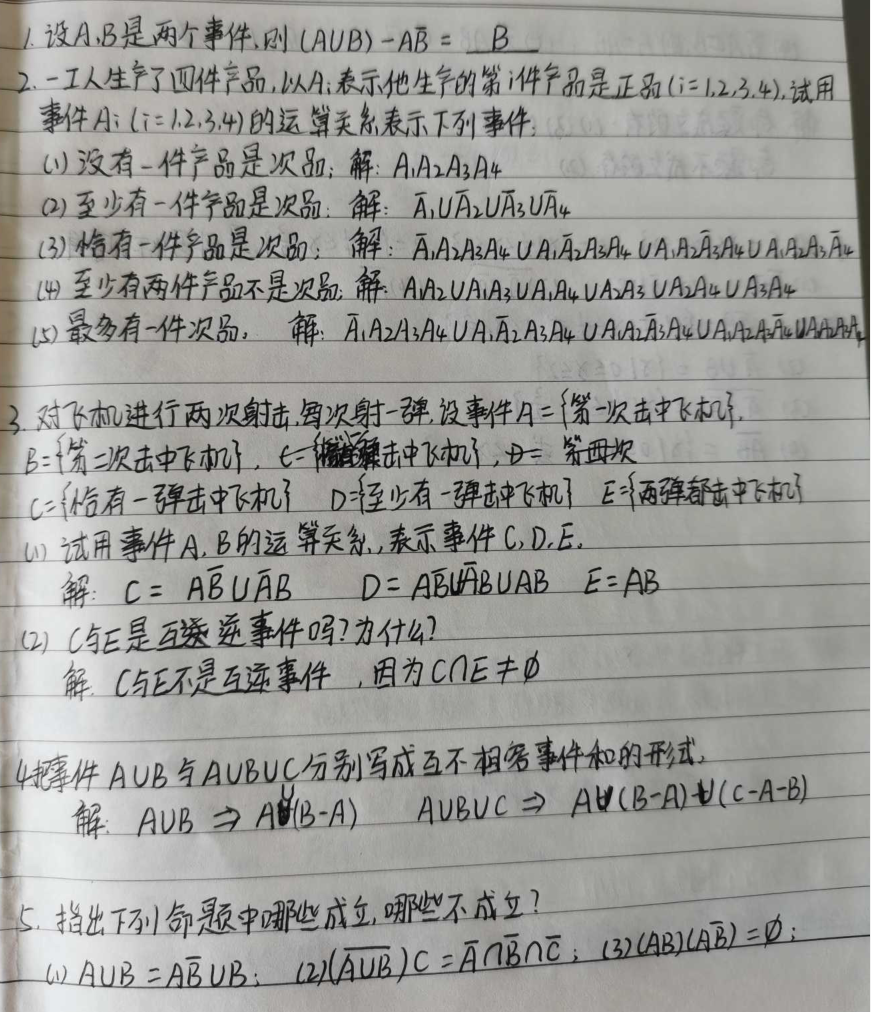 1. 设A,B是两个事件,则 (A∪B)-AB̅ = B
2. 一工人生产了四件产品,以Ai表示他生产的第i件产品是正品(i=1,2,3,4),试用
事件Ai (i=1,2,3,4)的运算关系表示下列事件;
(1) 没有一件产品是次品; 解: A₁A₂A₃A₄
(2) 至少有一件产品是次品: 解: A̅₁∪A̅₂∪A̅₃∪A̅₄
(3) 恰有一件产品是次品; 解: A̅₁A₂A₃A₄∪A₁A̅₂A₃A₄∪A₁A₂A̅₃A₄∪A₁A₂A₃A̅₄
(4) 至少有两件产品不是次品: 解: A₁A₂∪A₁A₃∪A₁A₄∪A₂A₃∪A₂A₄∪A₃A₄
(5) 最多有一件次品, 解: A̅₁A₂A₃A₄∪A₁A̅₂A₃A₄∪A₁A₂A̅₃A₄∪A₁A₂A₃A̅₄∪A₁A₂A₃A₄
3. 对飞机进行两次射击,每次射一弹,设事件A={第一次击中飞机},
B={第二次击中飞机}, C={击中飞机}, D= 第四次
C={恰有一弹击中飞机} D={至少有一弹击中飞机} E={两弹都击中飞机}
(1) 试用事件A,B的运算关系,表示事件C,D,E.
解: C= AB̅∪A̅B D= AB̅∪A̅B∪AB E=AB
(2) C与E是互逆事件吗?为什么?
解. C与E不是互逆事件 ,因为C∩E≠∅
4把事件A∪B与A∪B∪C分别写成互不相容事件和的形式,
解: A∪B ⇒ A∪(B-A) A∪B∪C ⇒ A∪(B-A)∪(C-A-B)
5. 指出下列命题中哪些成立,哪些不成立?
(1) A∪B = AB̅∪B; (2)(A̅∪̅B̅)C = A̅∩B̅∩C̅; (3)(AB)(AB̅)=∅;